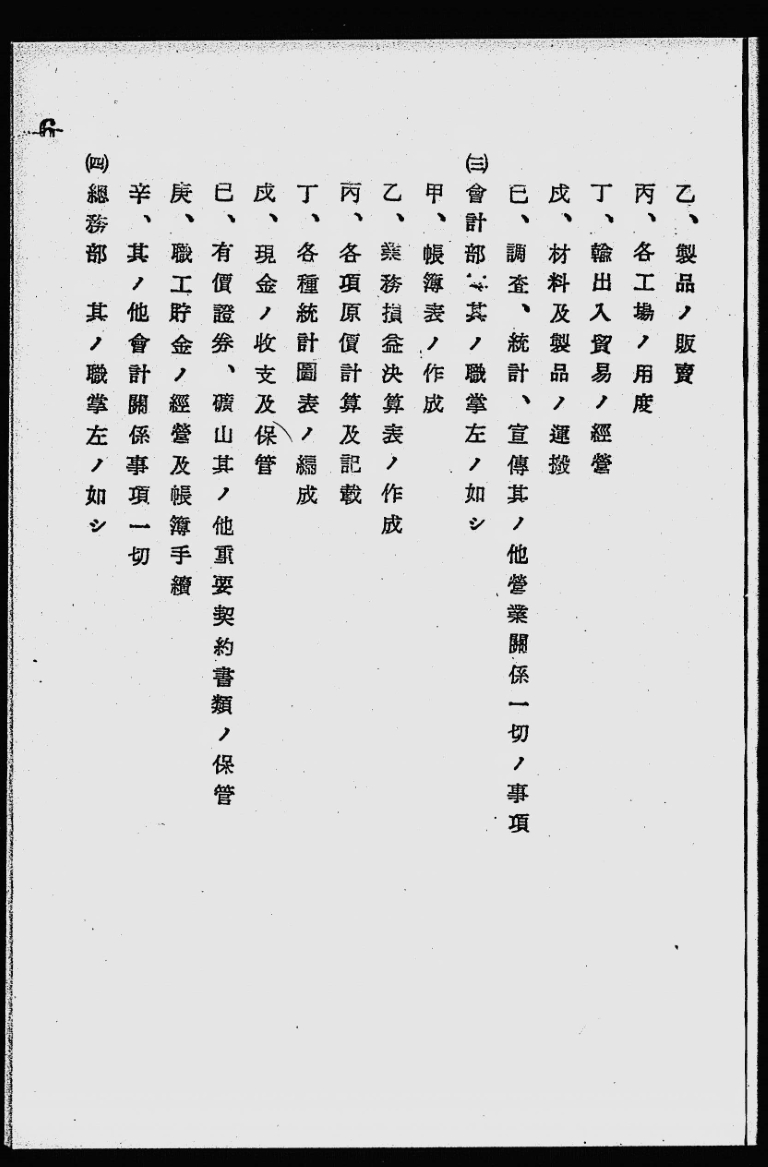 乙、製品ノ販賣
丙、各工場ノ用度
丁、輸出入貿易ノ經營
戊、材料及製品ノ運搬
已、調査、統計、宣傳其ノ他營業關係一切ノ事項
㈢會計部 其ノ職掌左ノ如シ
甲、帳簿表ノ作成
乙、業務損益決算表ノ作成
丙、各項原價計算及記載
丁、各種統計圖表ノ編成
戊、現金ノ收支及保管
已、有價證券、礦山其ノ他重要契約書類ノ保管
庚、職工貯金ノ經營及帳簿手續
辛、其ノ他會計關係事項一切
㈣總務部 其ノ職掌左ノ如シ
6